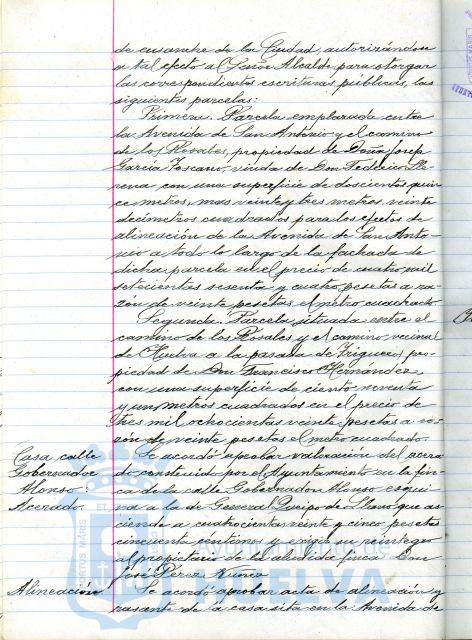 de ensanche de la Ciudad, autorizándose
a tal efecto al Señor Alcalde para otorgar
las correspondientes escrituras públicas, las
siguientes parcelas:
Primera. Parcela emplazada entre
la Avenida de San Antonio y el camino
de los Rosales, propiedad de Doña Josefa
García Toscano, viuda de Don Federico
con una superficie de doscientos quin
ce metros, mas veinte y tres metros veinte
decímetros cuadrados para los efectos de
alineación de la Avenida de San Anto-
nio a todo lo largo de la fachada de
dicha parcela en el precio de cuatro mil
setecientas sesenta y cuatro pesetas a ra-
zón de veinte pesetas el metro cuadrado
Segunda. Parcela situada entre el
camino de los Rosales y el camino vecinal
de Huelva a la pasada de Trigueros, pro-
piedad de Don Francisco Hernandez,
con una superficie de ciento noventa
y un metros cuadrados en el precio de
tres mil ochocientas veinte pesetas a ra-
zón de veinte pesetas el metro cuadrado.
Casa calle
Gobernador
Alonso:
Acerado.
Se acordó aprobar valoración del acera-
do construido por el Ayuntamiento en la fin-
ca de la calle Gobernador Alonso esqui
na a la de General Queipo de Llano que as-
ciende a cuatrocientas veinte y cinco pesetas
cincuenta céntimos y exigir su reintegro
al propietario de la aludida finca Don
José Pérez Nunco
Alineación
Se acordó aprobar acta de alineación y
rasante de la casa sita en la Avenida de
Ayuntamiento de
HUELVA
PORTUS MARIS